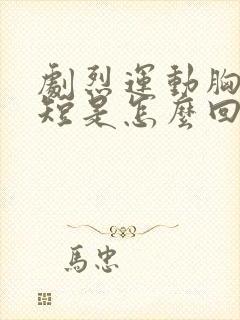 劇烈運動胸
短是怎麼回
馬忠